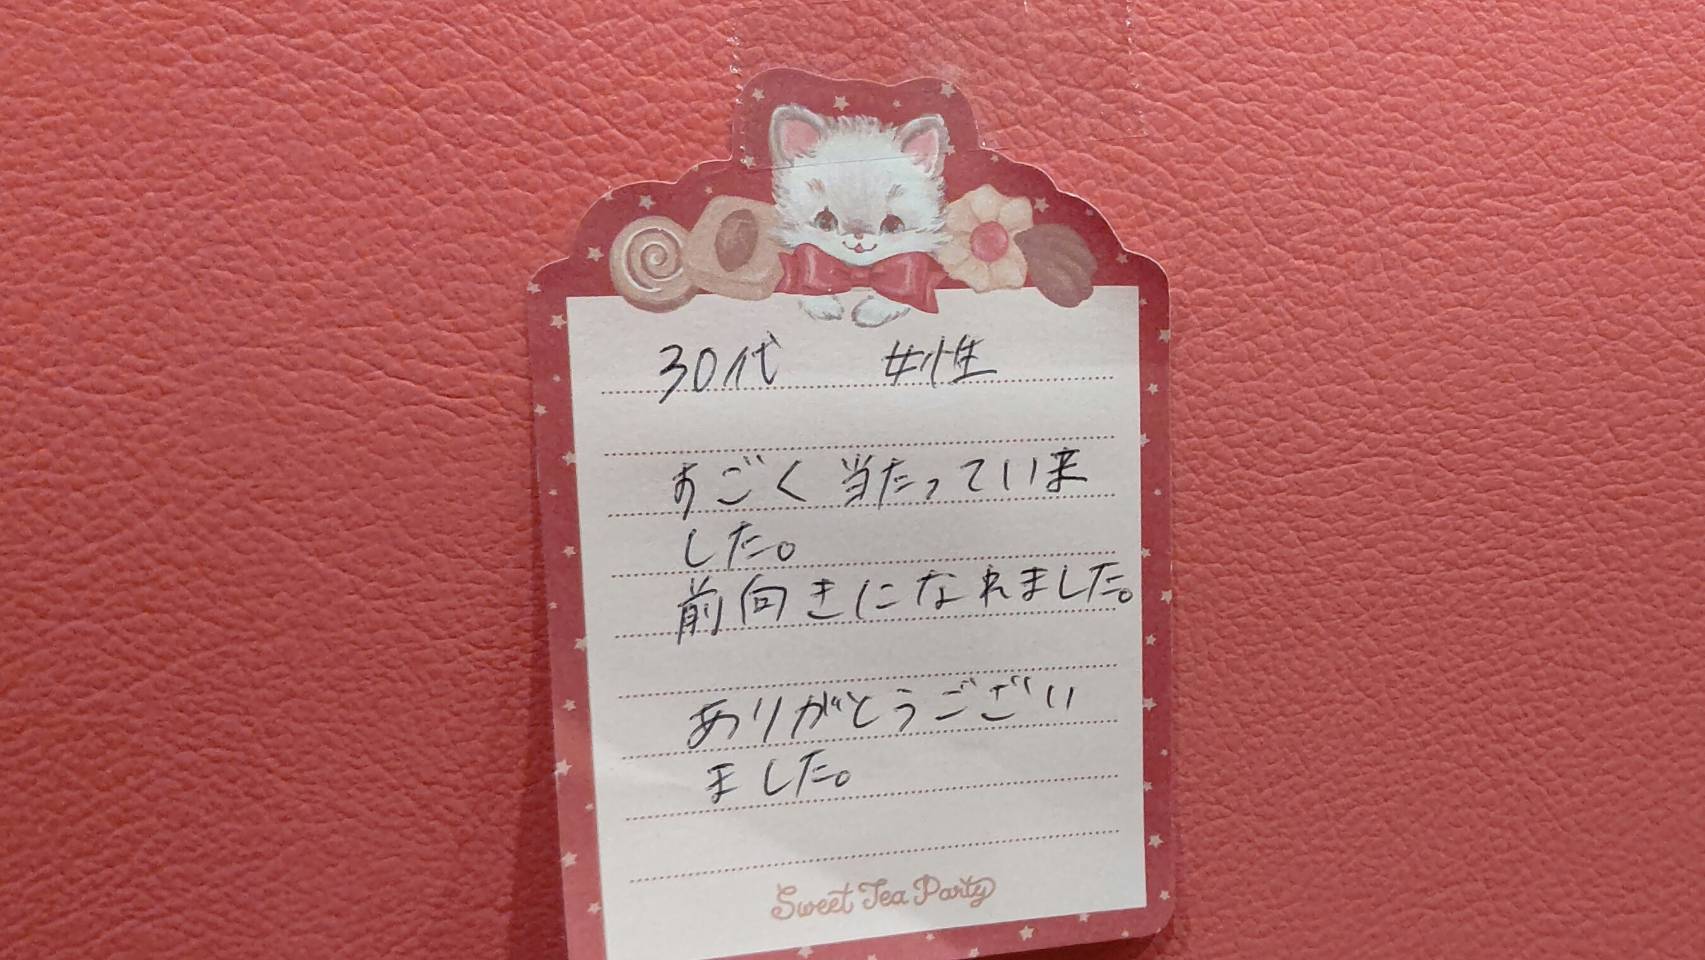 30代 女性
すごく当たっていま
した。
前向きになれました。
ありがとうござい
ました。
Sweet Tea Party